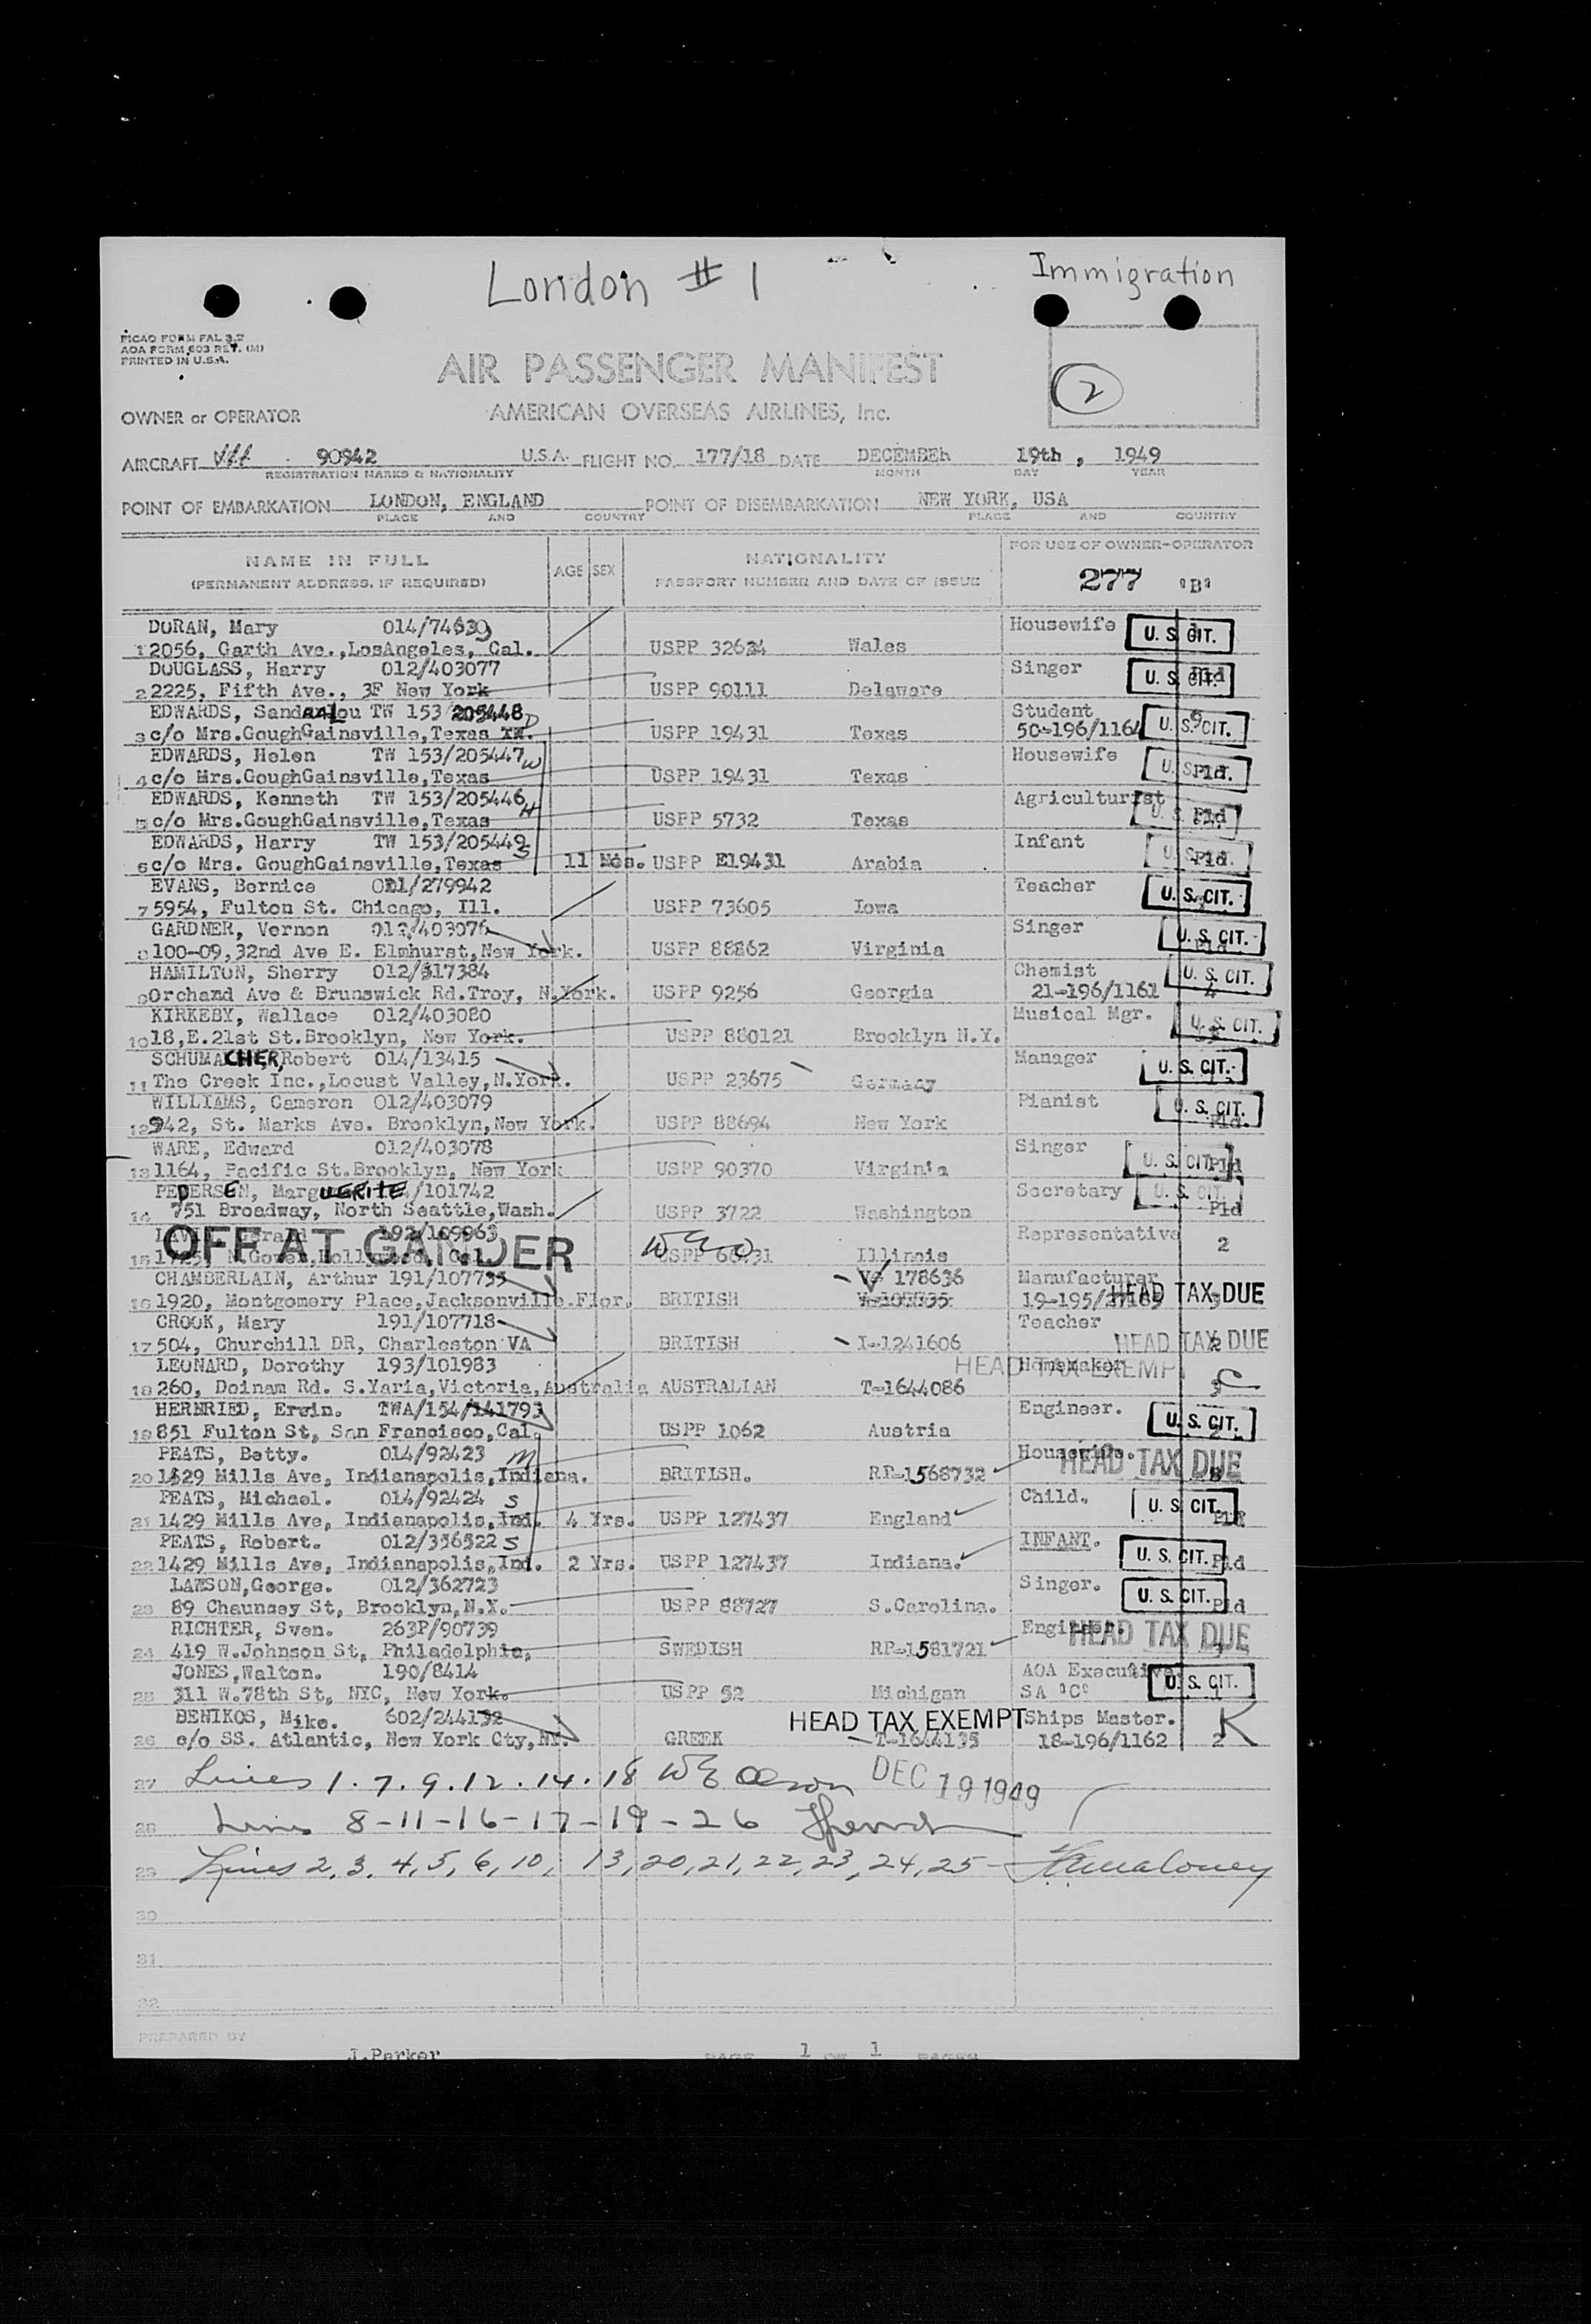 London # 1
Immigration
PICAO FORM FAL 3.2
AOA FORM 603 REV. (M)
PRINTED IN U.S.A.
AIR PASSENGER MANIFEST
2
OWNER or OPERATOR AMERICAN OVERSEAS AIRLINES, Inc.
AIRCRAFT 90942 U.S.A. FLIGHT NO. 177/18 DATE DECEMBER 19th, 1949
REGISTRATION MARKS & NATIONALITY MONTH DAY YEAR
POINT OF EMBARKATION LONDON, ENGLAND POINT OF DISEMBARKATION NEW YORK, USA
PLACE AND COUNTRY PLACE AND COUNTRY
NAME IN FULL AGE SEX NATIONALITY FOR USE OF OWNER-OPERATOR
(PERMANENT ADDRESS, IF REQUIRED) PASSPORT NUMBER AND DATE OF ISSUE 277 "B"
DORAN, Mary 014/74639 Housewife U. S. CIT.
1 2056, Garth Ave.,LosAngeles, Cal. USPP 32624 Wales
DOUGLASS, Harry 012/403077 Singer U. S. CIT. Pld
2 2225, Fifth Ave., 3F New York USPP 90111 Delaware
EDWARDS, Sandra Lou TW 153/205448 D Student U. S. CIT.
3 c/o Mrs.GoughGainsville,Texas USPP 19431 Texas 50-196/1164
EDWARDS, Helen TW 153/205447 W Housewife
4 c/o Mrs.GoughGainsville,Texas USPP 19431 Texas Pld.
EDWARDS, Kenneth TW 153/205446 H Agriculturist
5 c/o Mrs.GoughGainsville,Texas USPP 5732 Texas Pld
EDWARDS, Harry TW 153/205449 S Infant
6 c/o Mrs. GoughGainsville,Texas 11 Mos. USPP E19431 Arabia Pld.
EVANS, Bernice 011/279942 Teacher U. S. CIT.
7 5954, Fulton St. Chicago, Ill. USPP 73605 Iowa
GARDNER, Vernon 012/403076 Singer U. S. CIT.
8 100-09,32nd Ave E. Elmhurst,New York. USPP 88862 Virginia Pld
HAMILTON, Sherry 012/317384 Chemist U. S. CIT.
9 Orchand Ave & Brunswick Rd.Troy, N.York. USPP 9256 Georgia 21-196/1161 4
KIRKEBY, Wallace 012/403080 Musical Mgr. U. S. CIT.
10 18,E.21st St.Brooklyn, New York. USPP 880121 Brooklyn N.Y.
SCHUMACHER, Robert 014/13415 Manager U. S. CIT.
11 The Creek Inc.,Locust Valley,N.York. USPP 23675 Germany
WILLIAMS, Cameron 012/403079 Pianist U. S. CIT.
12 942, St. Marks Ave. Brooklyn,New York. USPP 88694 New York Pld.
WARE, Edward 012/403078 Singer U. S. CIT.
13 1164, Pacific St.Brooklyn, New York USPP 90370 Virginia Pld
PEDERSEN, MargUERITE /101742 Secretary U. S. CIT.
14 751 Broadway, North Seattle,Wash. USPP 3722 Washington Pld
192/109963 Representative 2
OFF AT GANDER
15 USPP Illinois
CHAMBERLAIN, Arthur 191/107735 V- 178636 Manufacturer
16 1920, Montgomery Place,Jacksonville.Flor. BRITISH 19-195/ HEAD TAX DUE
CROOK, Mary 191/107718 Teacher
17 504, Churchill DR, Charleston VA BRITISH I-1241606 HEAD TAX DUE
LEONARD, Dorothy 193/101983 HEAD TAX EXEMPT Homemaker
18 260, Doinam Rd. S.Yaria,Victoria,Australia AUSTRALIAN T-1644086
HERNRIED, Erwin. TWA/154/141793 Engineer. U. S. CIT.
19 851 Fulton St, San Francisco,Cal. USPP 1062 Austria
PEATS, Betty. 014/92423 m Housewife. HEAD TAX DUE
20 1429 Mills Ave, Indianapolis,Indiana. BRITISH. RP-1568732
PEATS, Michael. 014/92424 S Child. U. S. CIT.
21 1429 Mills Ave, Indianapolis,Ind. 4 Yrs. USPP 127437 England
PEATS, Robert. 012/356522 S INFANT. U. S. CIT.
22 1429 Mills Ave, Indianapolis,Ind. 2 Yrs. USPP 127437 Indiana. Pld
LAWSON,George. 012/362723 Singer. U. S. CIT.
23 89 Chauncey St, Brooklyn,N.Y. USPP 88727 S.Carolina. Pld
RICHTER, Sven. 263P/90739 Engineer. HEAD TAX DUE
24 419 W.Johnson St, Philadelphia, SWEDISH RP-1581721
JONES,Walton. 190/8414 AOA Executive U. S. CIT.
25 311 W.78th St, NYC, New York. USPP 52 Michigan SA "C"
BENIKOS, Mike. 602/244132 HEAD TAX EXEMPT Ships Master. K
26 c/o SS. Atlantic, New York Cty,NY. GREEK T-1644135 18-196/1162 2
27 Lines 1.7.9.12.14.18 DEC 19 1949
28 Lines 8-11-16-17-19-26
29 Lines 2,3,4,5,6,10, 13,20,21,22,23,24,25-
30
31
32
PREPARED BY
J.Parker PAGE 1 OF 1 PAGES